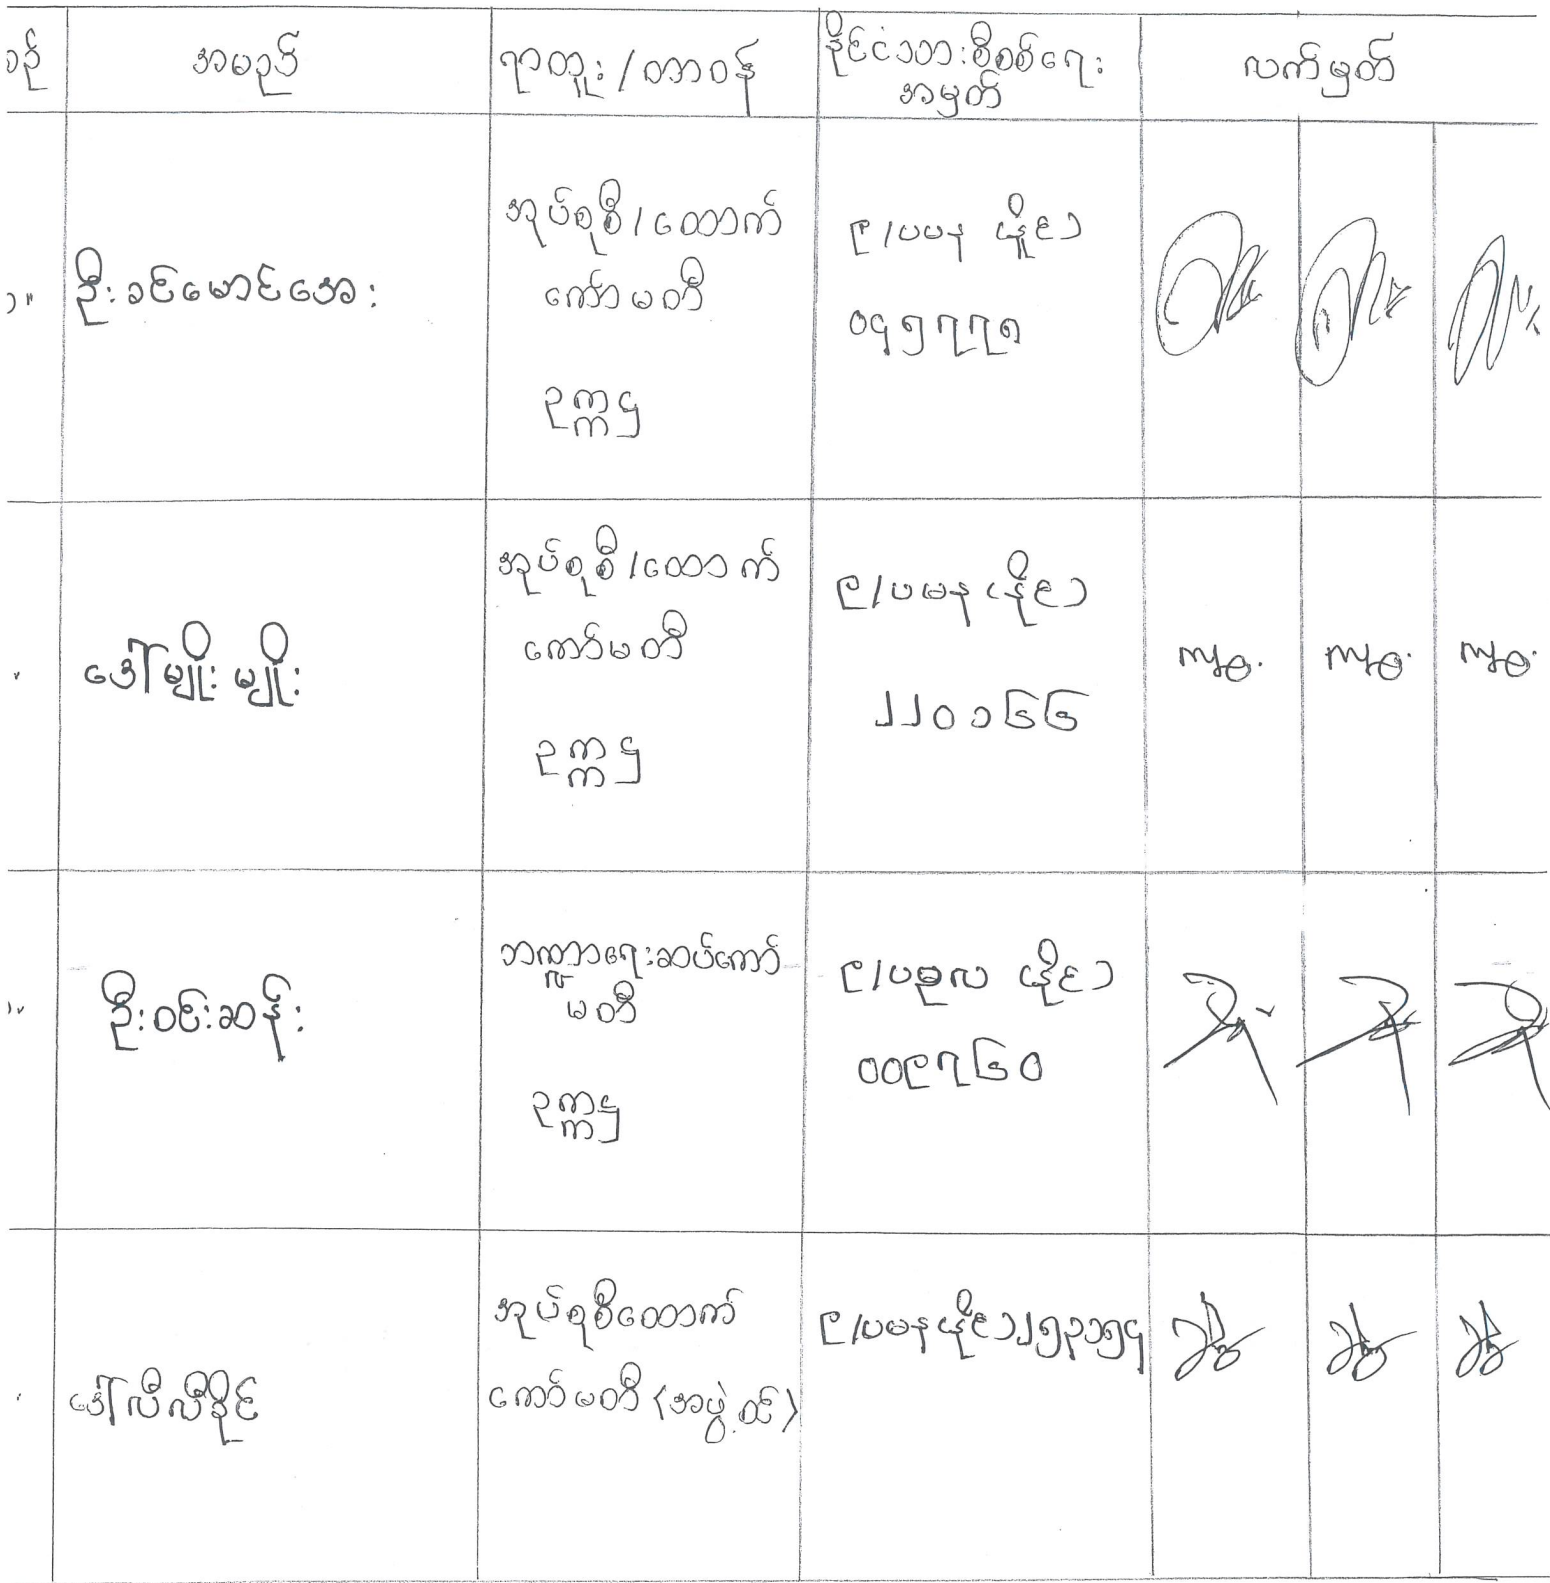 စဉ်
အမည်
ရာထူး/တာဝန်
နိုင်ငံသားစီစစ်ရေး
အမှတ်
လက်မှတ်
ဦးခင်မောင်အေး
အုပ်စုစီ/ထောက်
ကော်မတီ
ဥက္ကဌ
၉/ပမန (နိုင်)
၀၄၅၇၇၅
ဒေါ်မျိုးမျိုး
အုပ်စုစီ/ထောက်
ကော်မတီ
ဥက္ကဌ
၉/ပမန (နိုင်)
၂၂၀၁၆၆
ဦးဝင်းဆန်း
ဘဏ္ဍာရေးဆပ်ကော်
မတီ
ဥက္ကဌ
၉/ပဗုလ (နိုင်)
၀၀၉၇၆၀
ဒေါ်လီလီခိုင်
အုပ်စုစီထောက်
ကော်မတီ (အဖွဲ့ဝင်)
၉/ပမန(နိုင်)၂၅၃၁၅၄